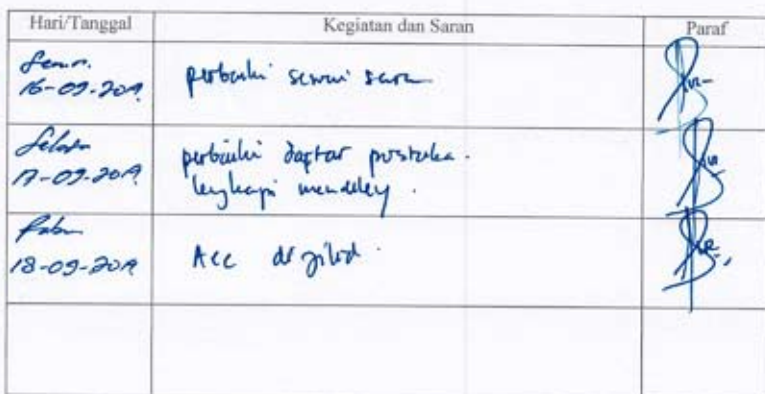 Hari/Tanggal Kegiatan dan Saran Paraf
Senin.
16-09-2019 perbaiki sesuai saran
Selasa
17-09-2019 perbaiki daftar pustaka.
lengkapi mendeley.
Rabu
18-09-2019 Acc di jilid.